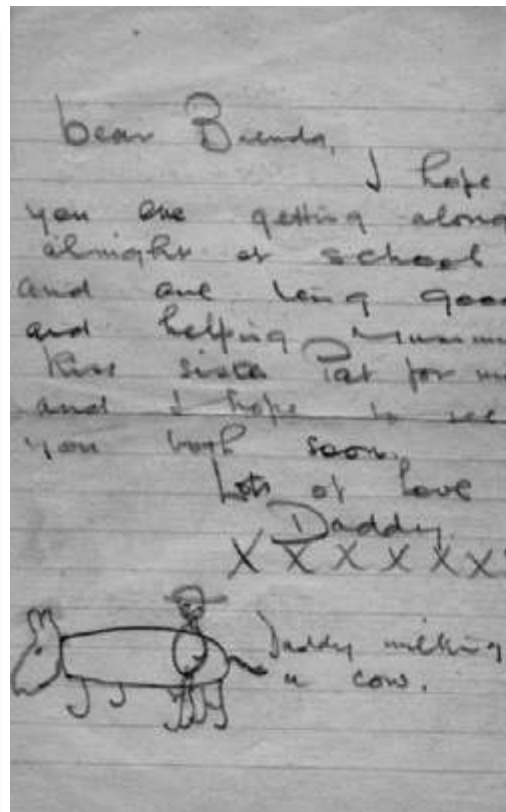 Dear Brenda,
I hope
you are getting along
alright at school
and are being good
and helping Mumm
Kiss sister Pat for me
and I hope to see
you both soon.
Lots of love
Daddy.
X X X X X X
Daddy milking
a cow.